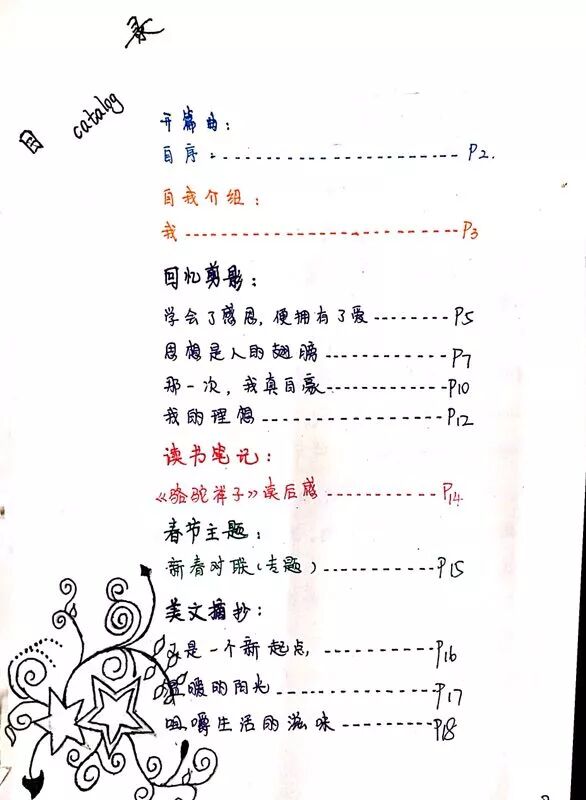 目录
catalog
开篇曲：
自序：------------------------P2.
自我介绍：
我------------------------P3
回忆剪影：
学会了感恩，便拥有了爱--------P5
思想是人的翅膀------------P7
那一次，我真自豪------------P10
我的理想----------------P12
读书笔记：
《骆驼祥子》读后感-----------P14
春节主题：
新春对联（专题）-----------P15
美文摘抄：
又是一个新起点，------------P16
温暖的阳光---------------P17
咀嚼生活的滋味----------P18